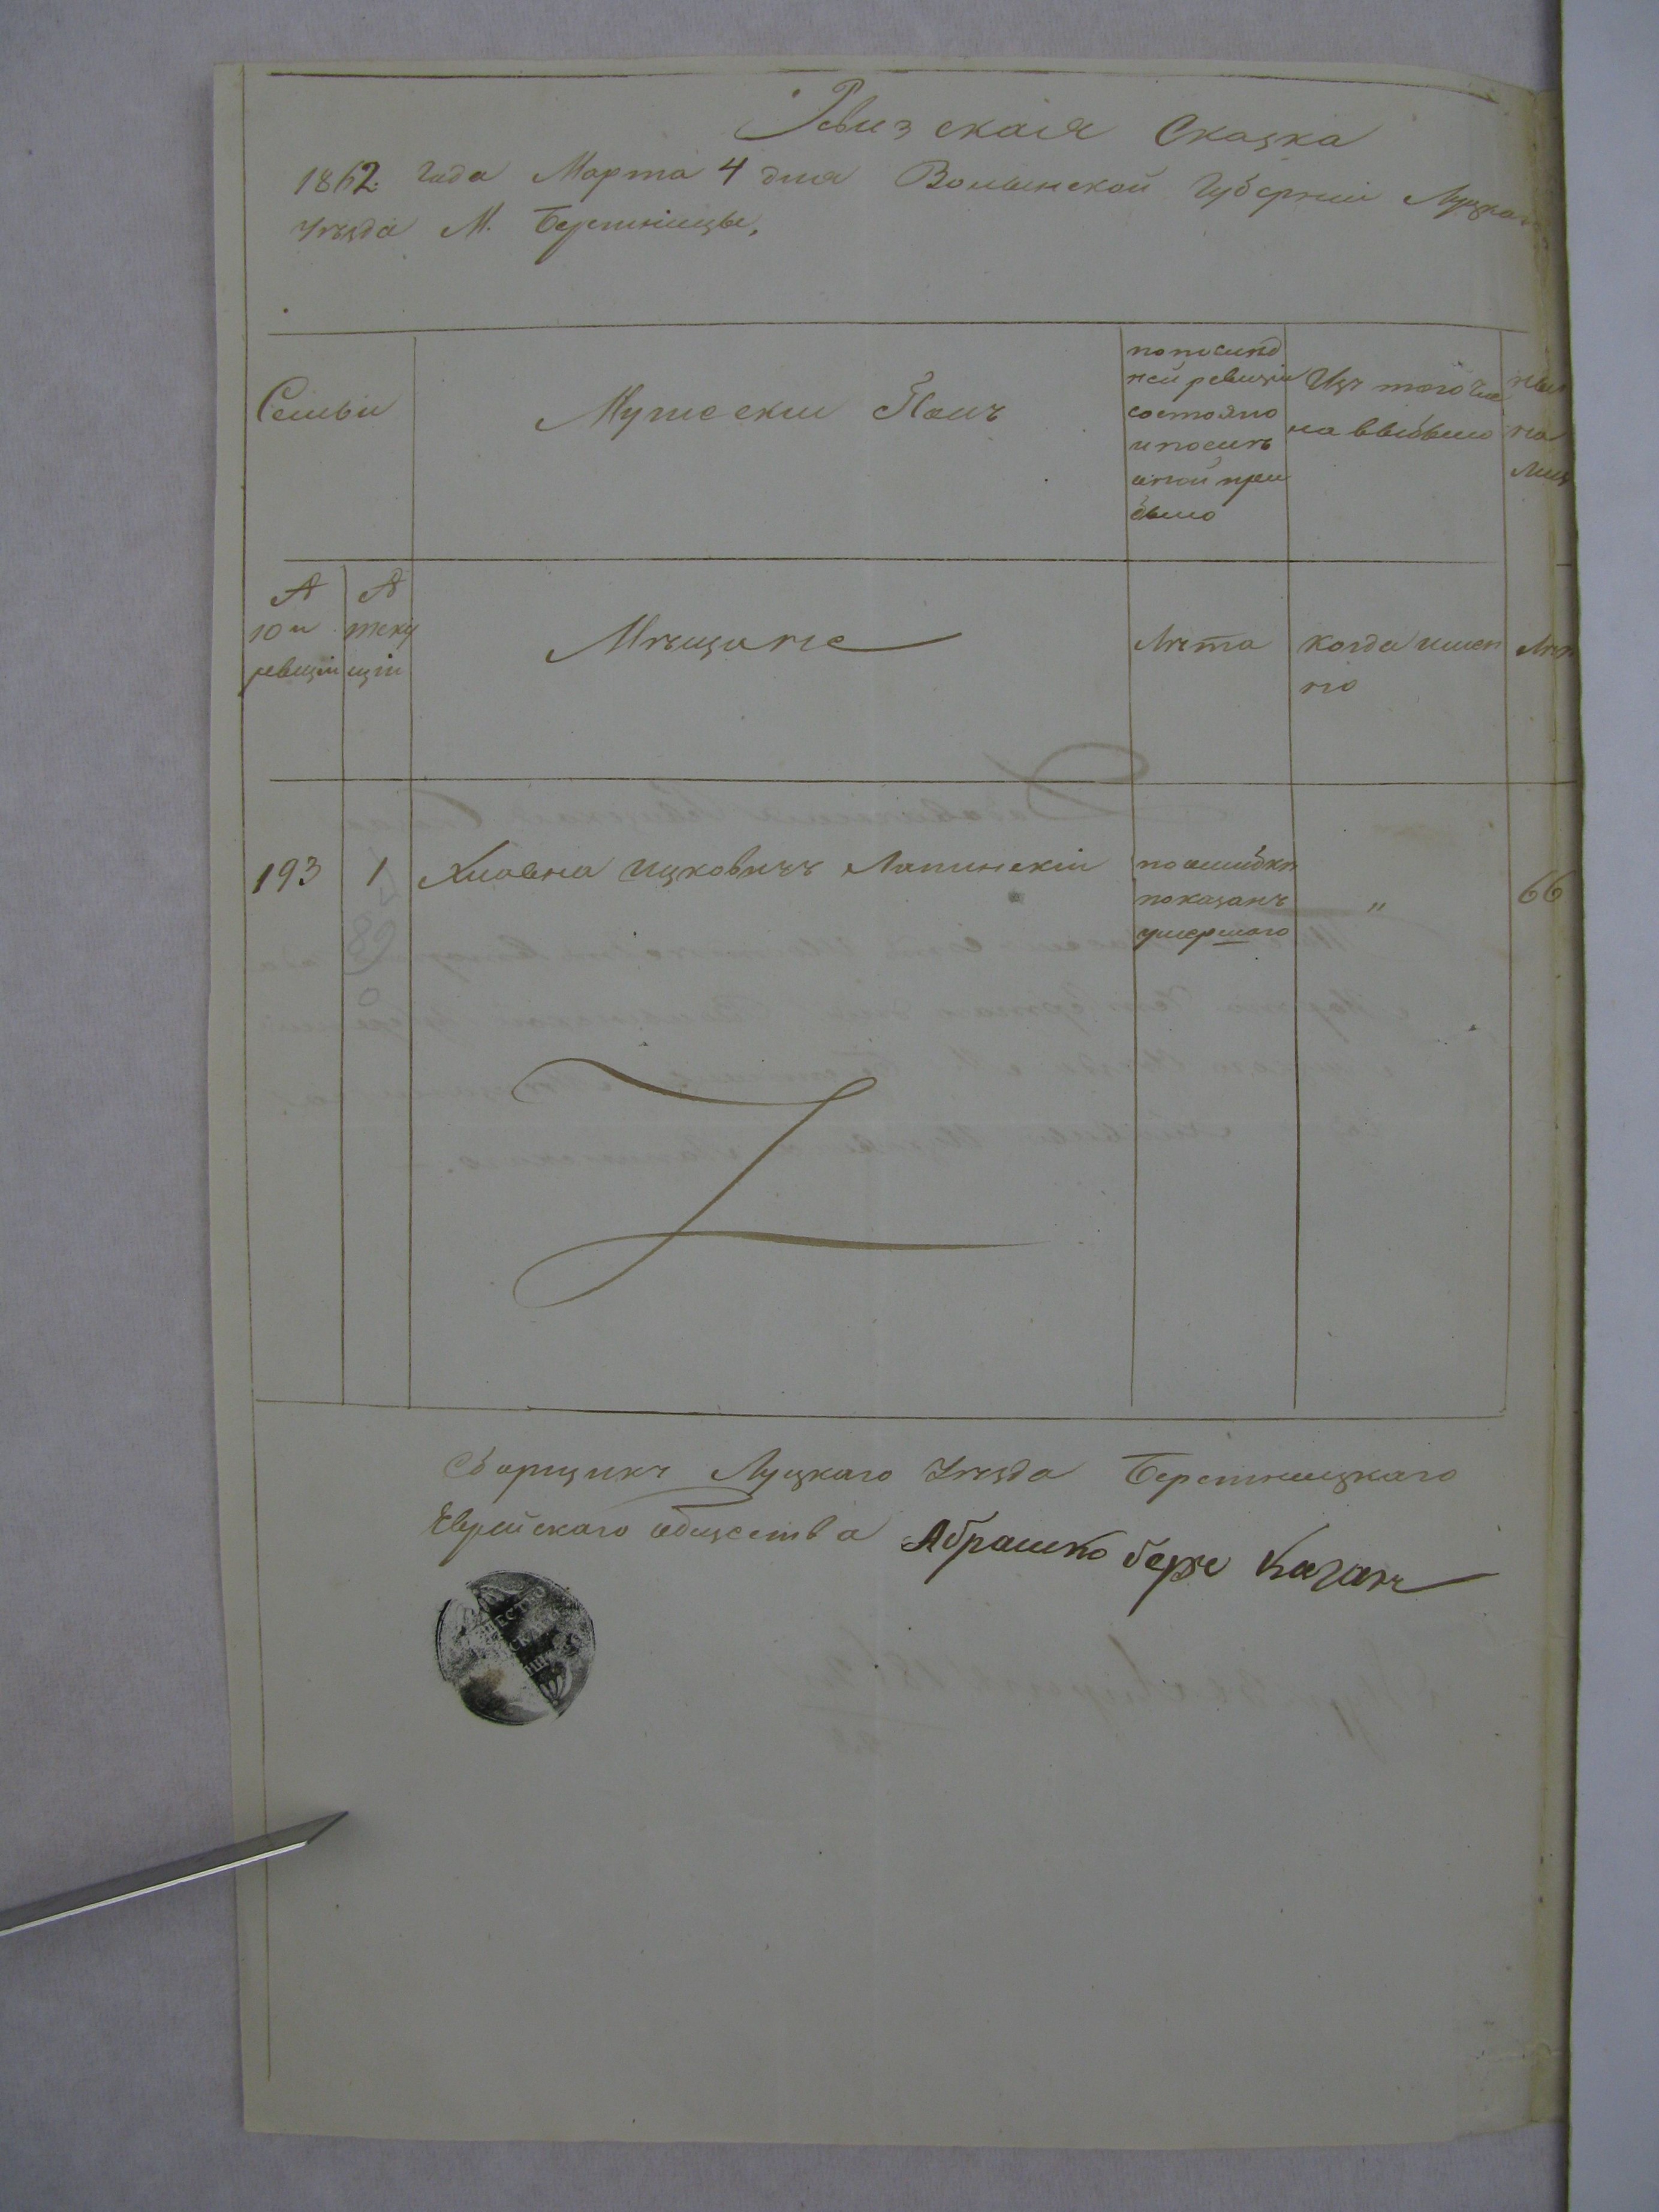 Ревизская Сказка
1862 года Марта 4 дня Волынской Губерніи Луцкаго
Уѣзда М. Бережницы,
Семьи
Мужеский Полъ
по послѣд
ней ревизіи
состояло
и послѣ
оной при
было
Изъ того чис
ла выбыло
ныне
на
Лиц
№
10й
ревизіи
№
теку
щій
Мѣщане
Лѣта
когда имен
но
Лѣт
193 1 Хловна Ицковичъ Лапинскій
по ошибки
показанъ
умершаго
„
66
Сборщикъ Луцкаго Уѣзда Бережницкаго
Еврейскаго общества Абрашко берже Каганъ